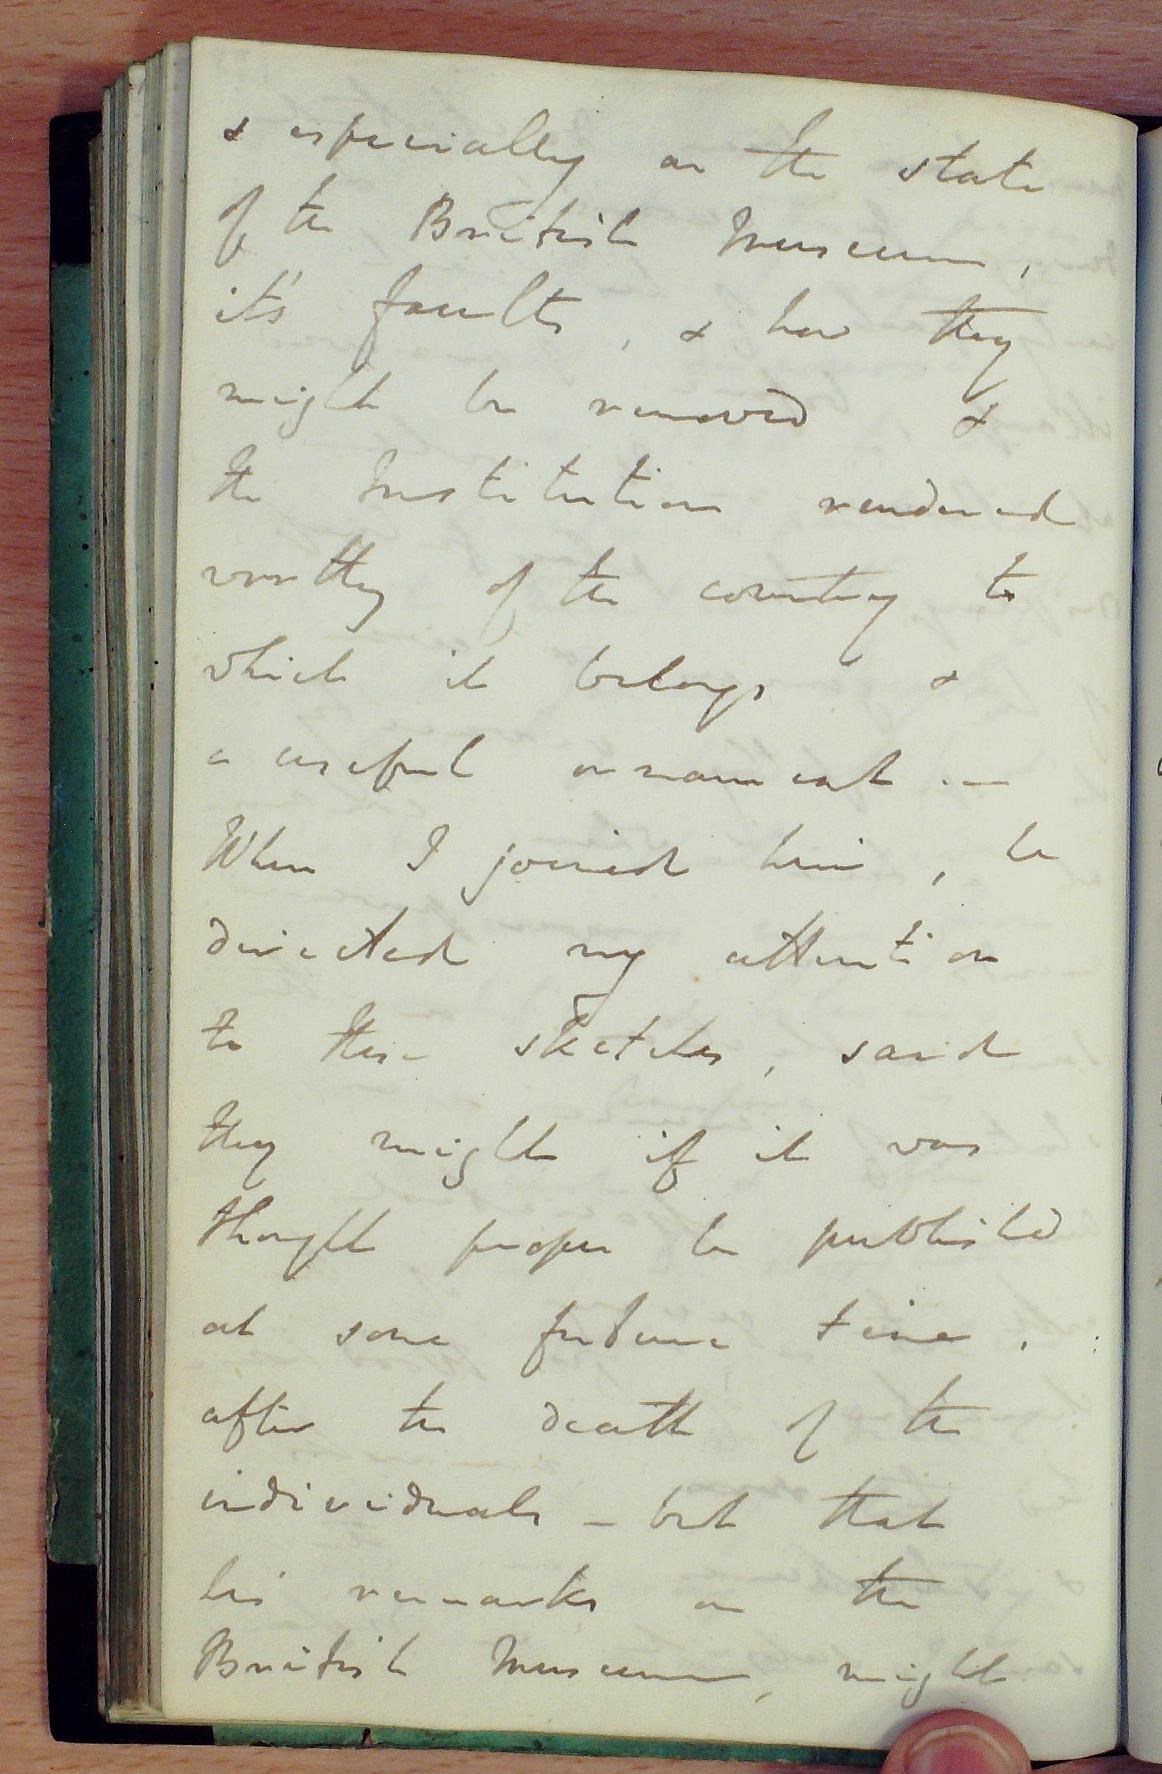 & especially on the state
of the British Museum,
it's faults, & how they
might be removed &
the Institution rendered
worthy of the country to
which it belongs &
a useful ornament. —
When I joined him, he
directed my attention
to these sketches, said
they might if it was
thought proper be published
at some future time,
after the death of the
individuals – but that
his remarks on the
British Museum, might